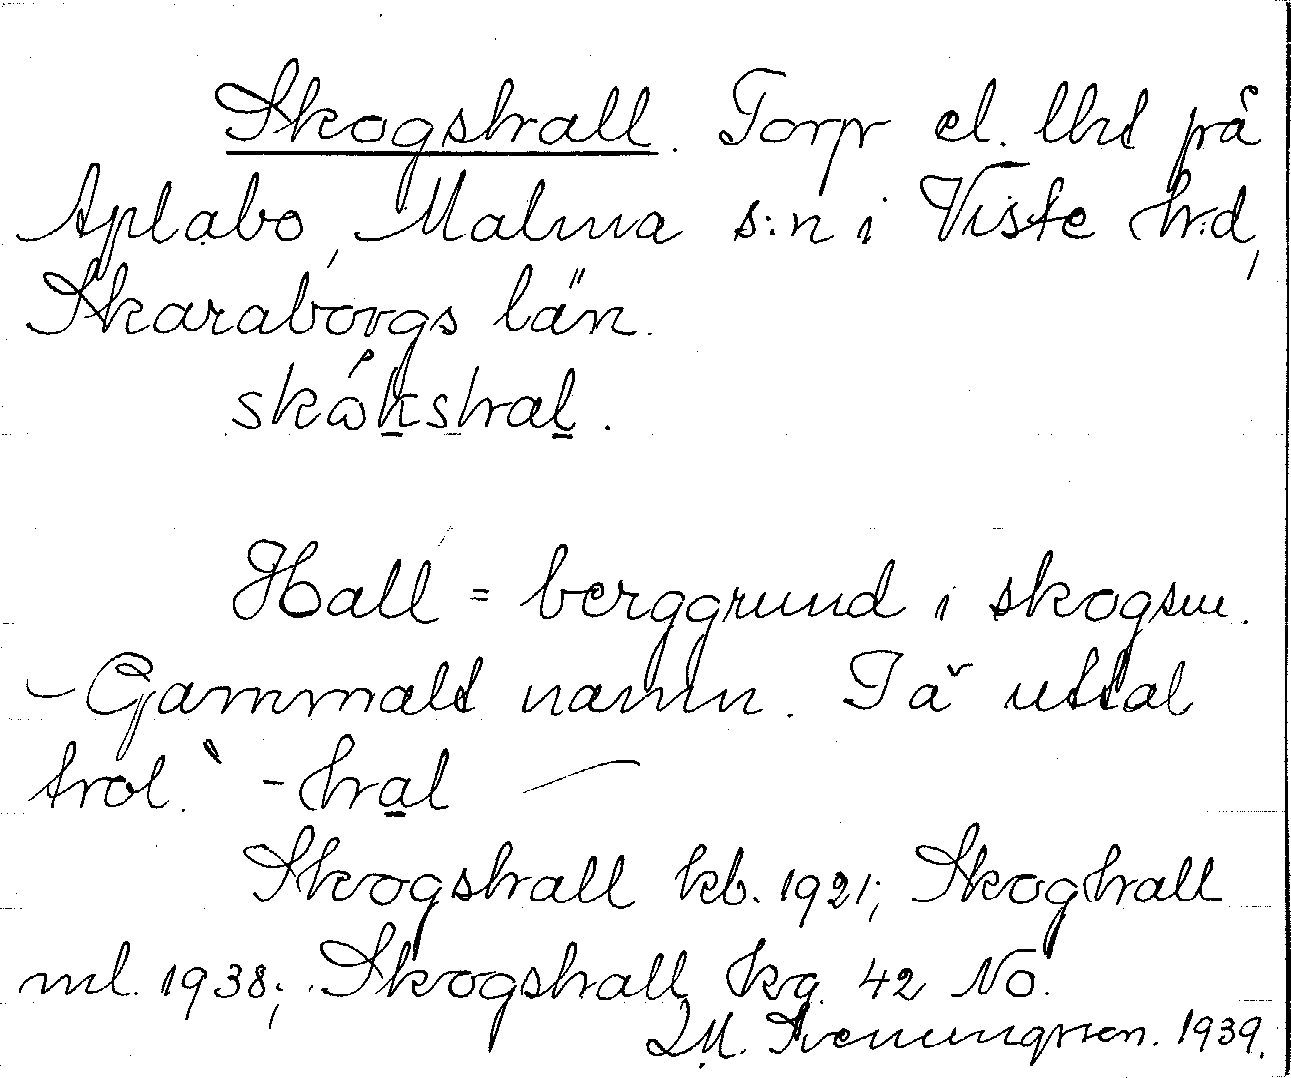 Skogshall. Torp el. lht på
Aplabo, Malma s:n i Viste h:d,
Skaraborgs län.
skώkshal.
Hall = berggrund i skogsm.
- Gammalt namn. Tä uttal
trol. `-hal —
Skogshall kb. 1921; Skoghall
ml. 1938; Skogshall kg. 42 NO.
D.M. Svenungsson. 1939.